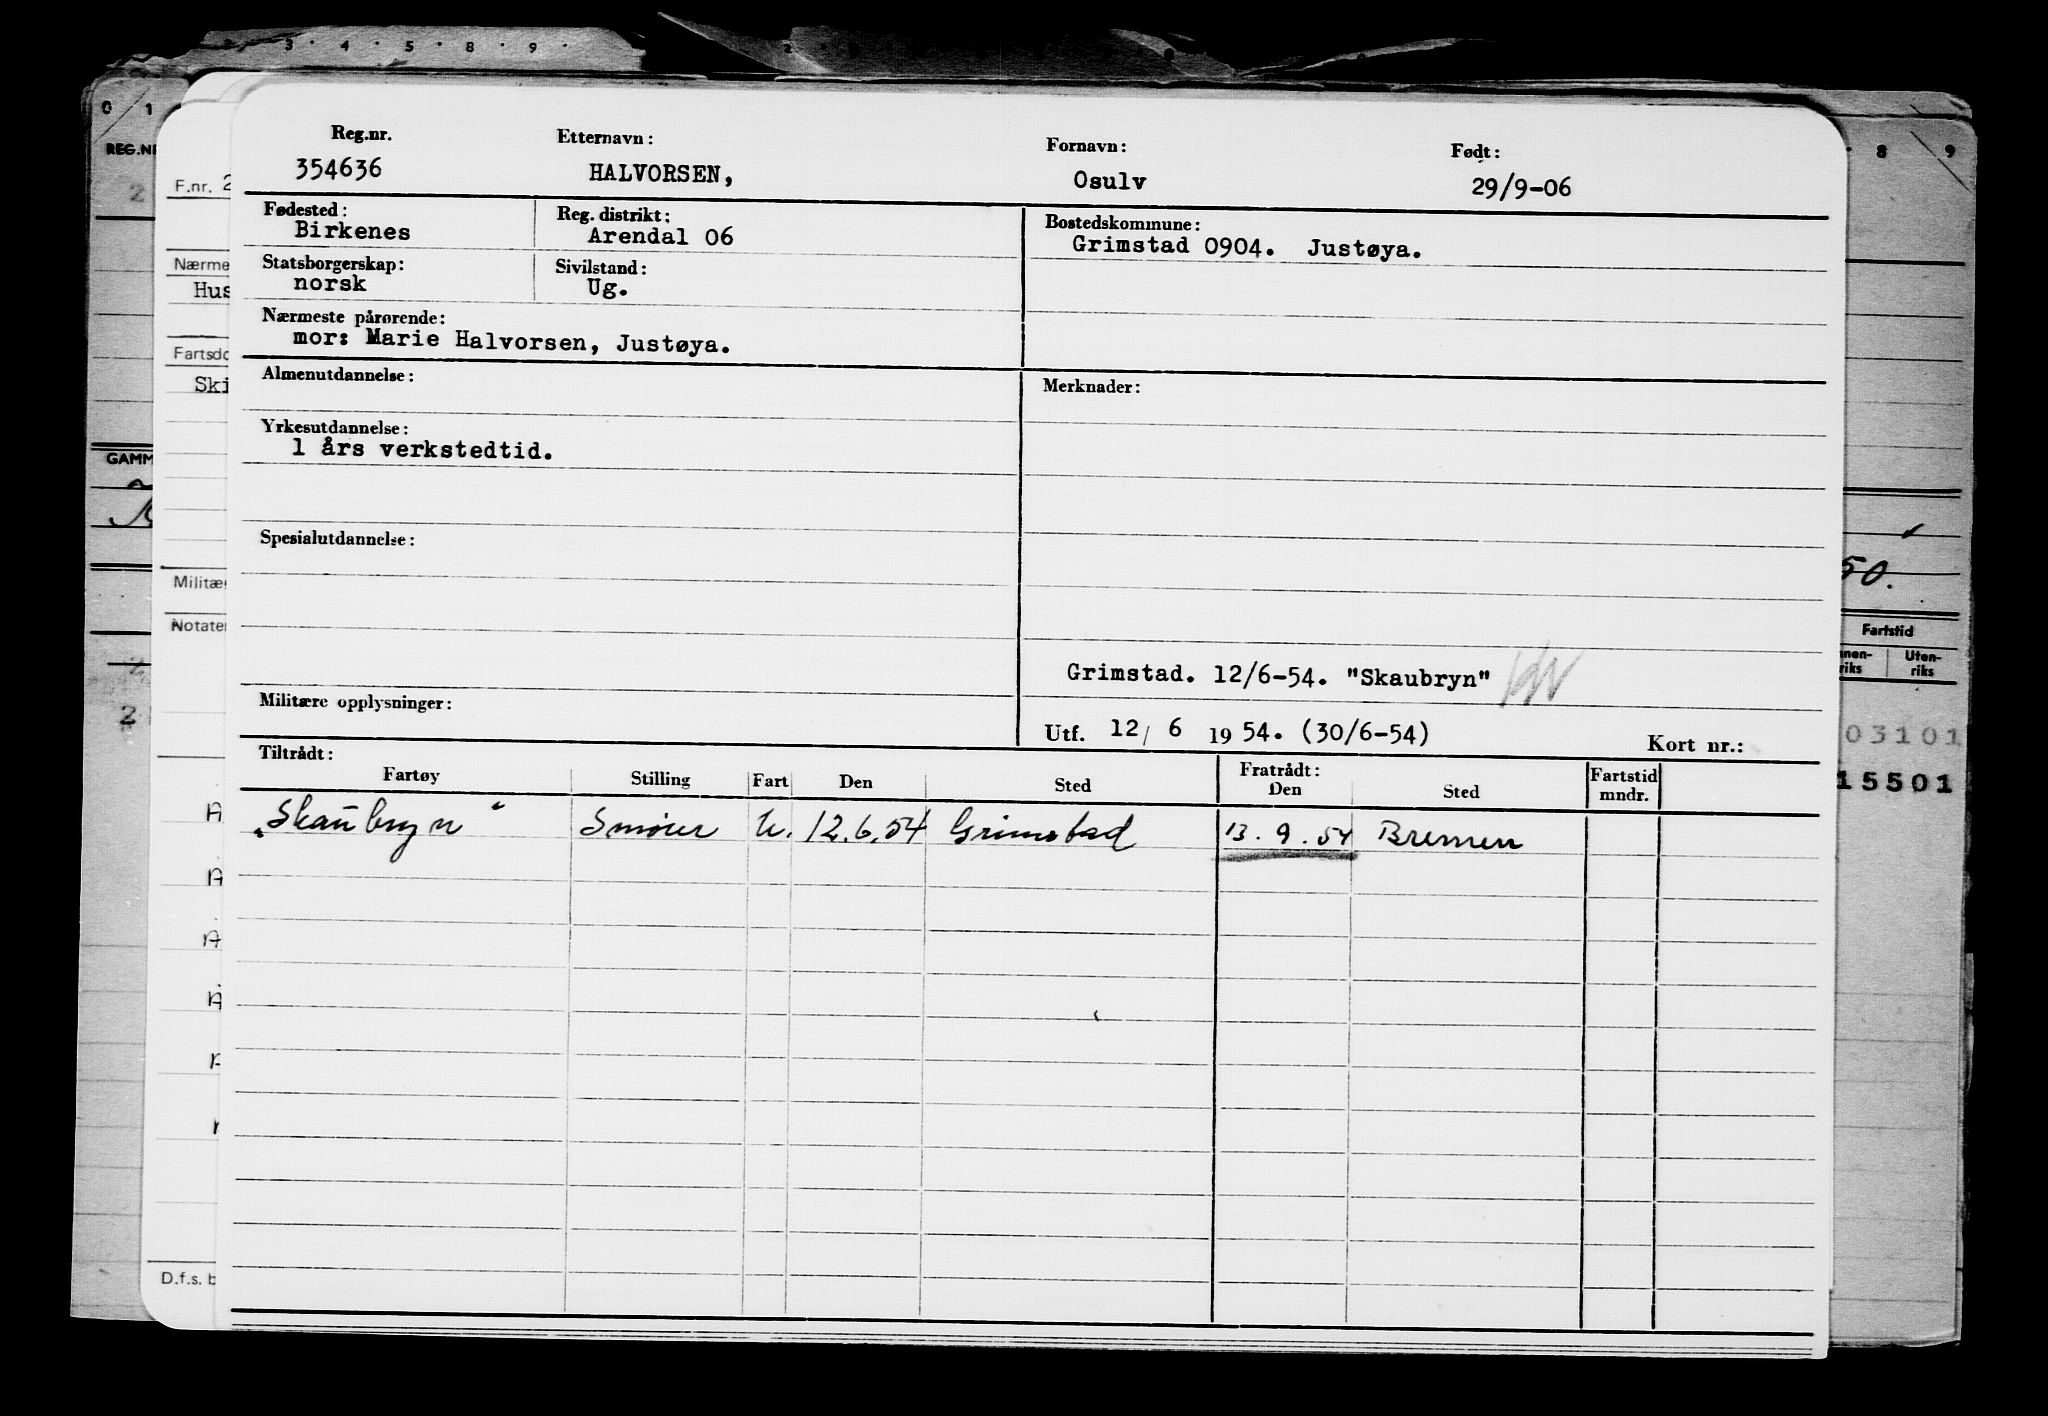 3 · 4 · 5 · 8 · 9 ·
0 1
8 9
REG.NR
2
F.nr. 2
Reg.nr. Etternavn: Fornavn: Født:
354636 HALVORSEN, Osulv 29/9-06
Fødested: Reg. distrikt: Bostedskommune:
Birkenes Arendal 06 Grimstad 0904. Justøya.
Statsborgerskap: Sivilstand:
norsk Ug.
Nærmeste pårørende:
mor: Marie Halvorsen, Justøya.
Almenutdannelse: Merknader:
Yrkesutdannelse:
1 års verkstedtid.
Spesialutdannelse:
Grimstad. 12/6-54. "Skaubryn"
Militære opplysninger:
Utf. 12/ 6 1954. (30/6-54) Kort nr.:
Tiltrådt: Fratrådt:
Fartøy Stilling Fart Den Sted Den Sted Fartstid mndr.
"Skaubryn" Smører U. 12.6.54 Grimstad 13.9.54 Bremen
Nærme
Hus
Fartsdo
Ski
GAMM
Militær
Notater
2
A
A
A
A
A
D.f.s. b
50.
Fartstid
nnen-
riks
Uten-
riks
03101
15501